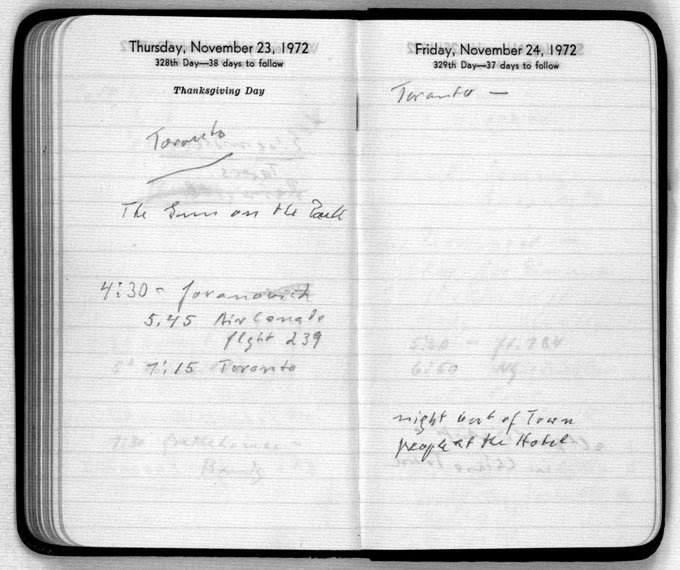 Thursday, November 23, 1972
328th Day—38 days to follow
Thanksgiving Day
Toronto
The Inn on the Park
4:30 - Jovanovich
5.45 Air Canada
flght 239
7:15 Toronto
Friday, November 24, 1972
329th Day—37 days to follow
Toronto —
night out of Town
people at the Hotel